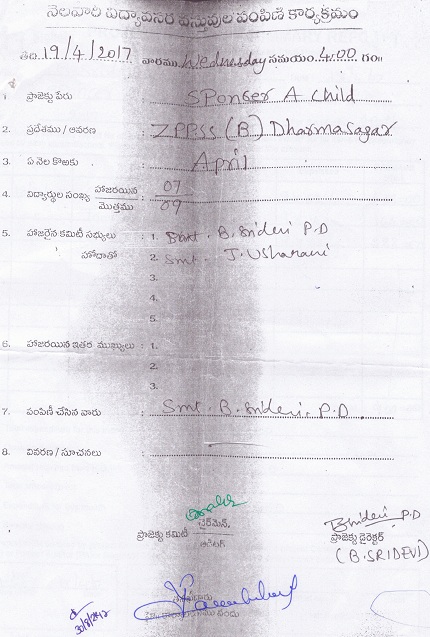 నెలవారి విద్యావసర వస్తువుల పంపిణి కార్యక్రమం
తేది 19/4/2017 వారము Wednesday సమయం. 4.00 గం॥
1. ప్రాజెక్టు పేరు : SPonser A Child
2. ప్రదేశము / ఆవరణ : ZPPSS (B) Dharmasagar
3. ఏ నెల కొఱకు : April
4. విద్యార్థుల సంఖ్య హాజరయిన 07
మొత్తము 09
5. హాజరైన కమిటీ సభ్యులు : 1. Smt. B. Sridevi P.D
హోదాతో 2. Smt. J. Usharani
3.
4.
5.
6. హాజరయిన ఇతర ముఖ్యులు : 1.
2.
3.
7. పంపిణీ చేసిన వారు : Smt. B. Sridevi. P.D.
8. వివరణ / సూచనలు :
ప్రాజెక్టు కమిటీ చైర్‌మెన్,
ఆడిటర్
BSridevi P.D
ప్రాజెక్టు డైరెక్టర్
(B. SRIDEVI)